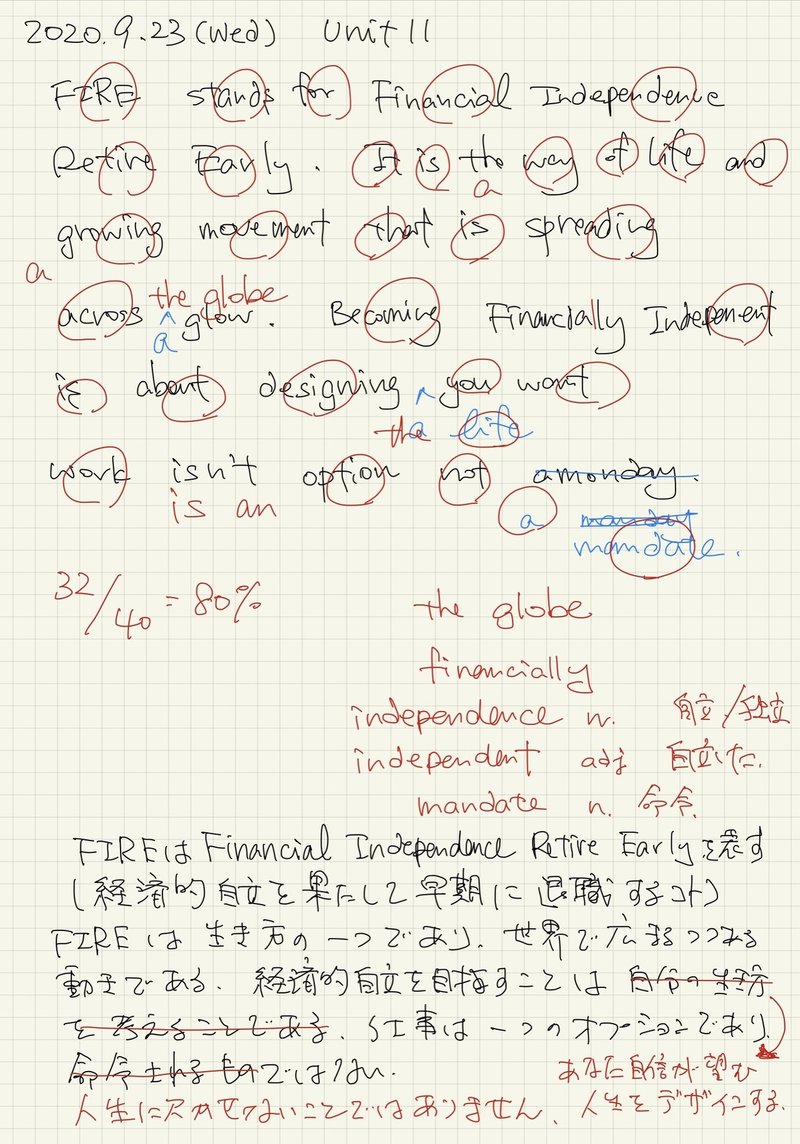 2020.9.23(Wed) Unit 11
FIRE stands for Financial Independence
Retire Early. It is the way of life and
a
growing movement that is spreading
a
the globe
across glow. Becoming Financially Indepenent
a
is about designing you want
the a life
work isn't option not amonday.
is an a manday
mandate.
32/40 = 80%
the globe
financially
independence n. 自立/独立
independent adj 自立した.
mandate n. 命令.
FIREはFinancial Independence Retire Earlyを表す
(経済的自立を果たして早期に退職するコト)
FIREは生き方の一つであり、世界で広まるつつある
動きである. 経済的自立を目指すことは自分の生き方
を考えることである. 仕事は一つのオプションであり、
命令されるものではない.
あなた自信が望む
人生に欠かせないことではありません. 人生をデザインする.